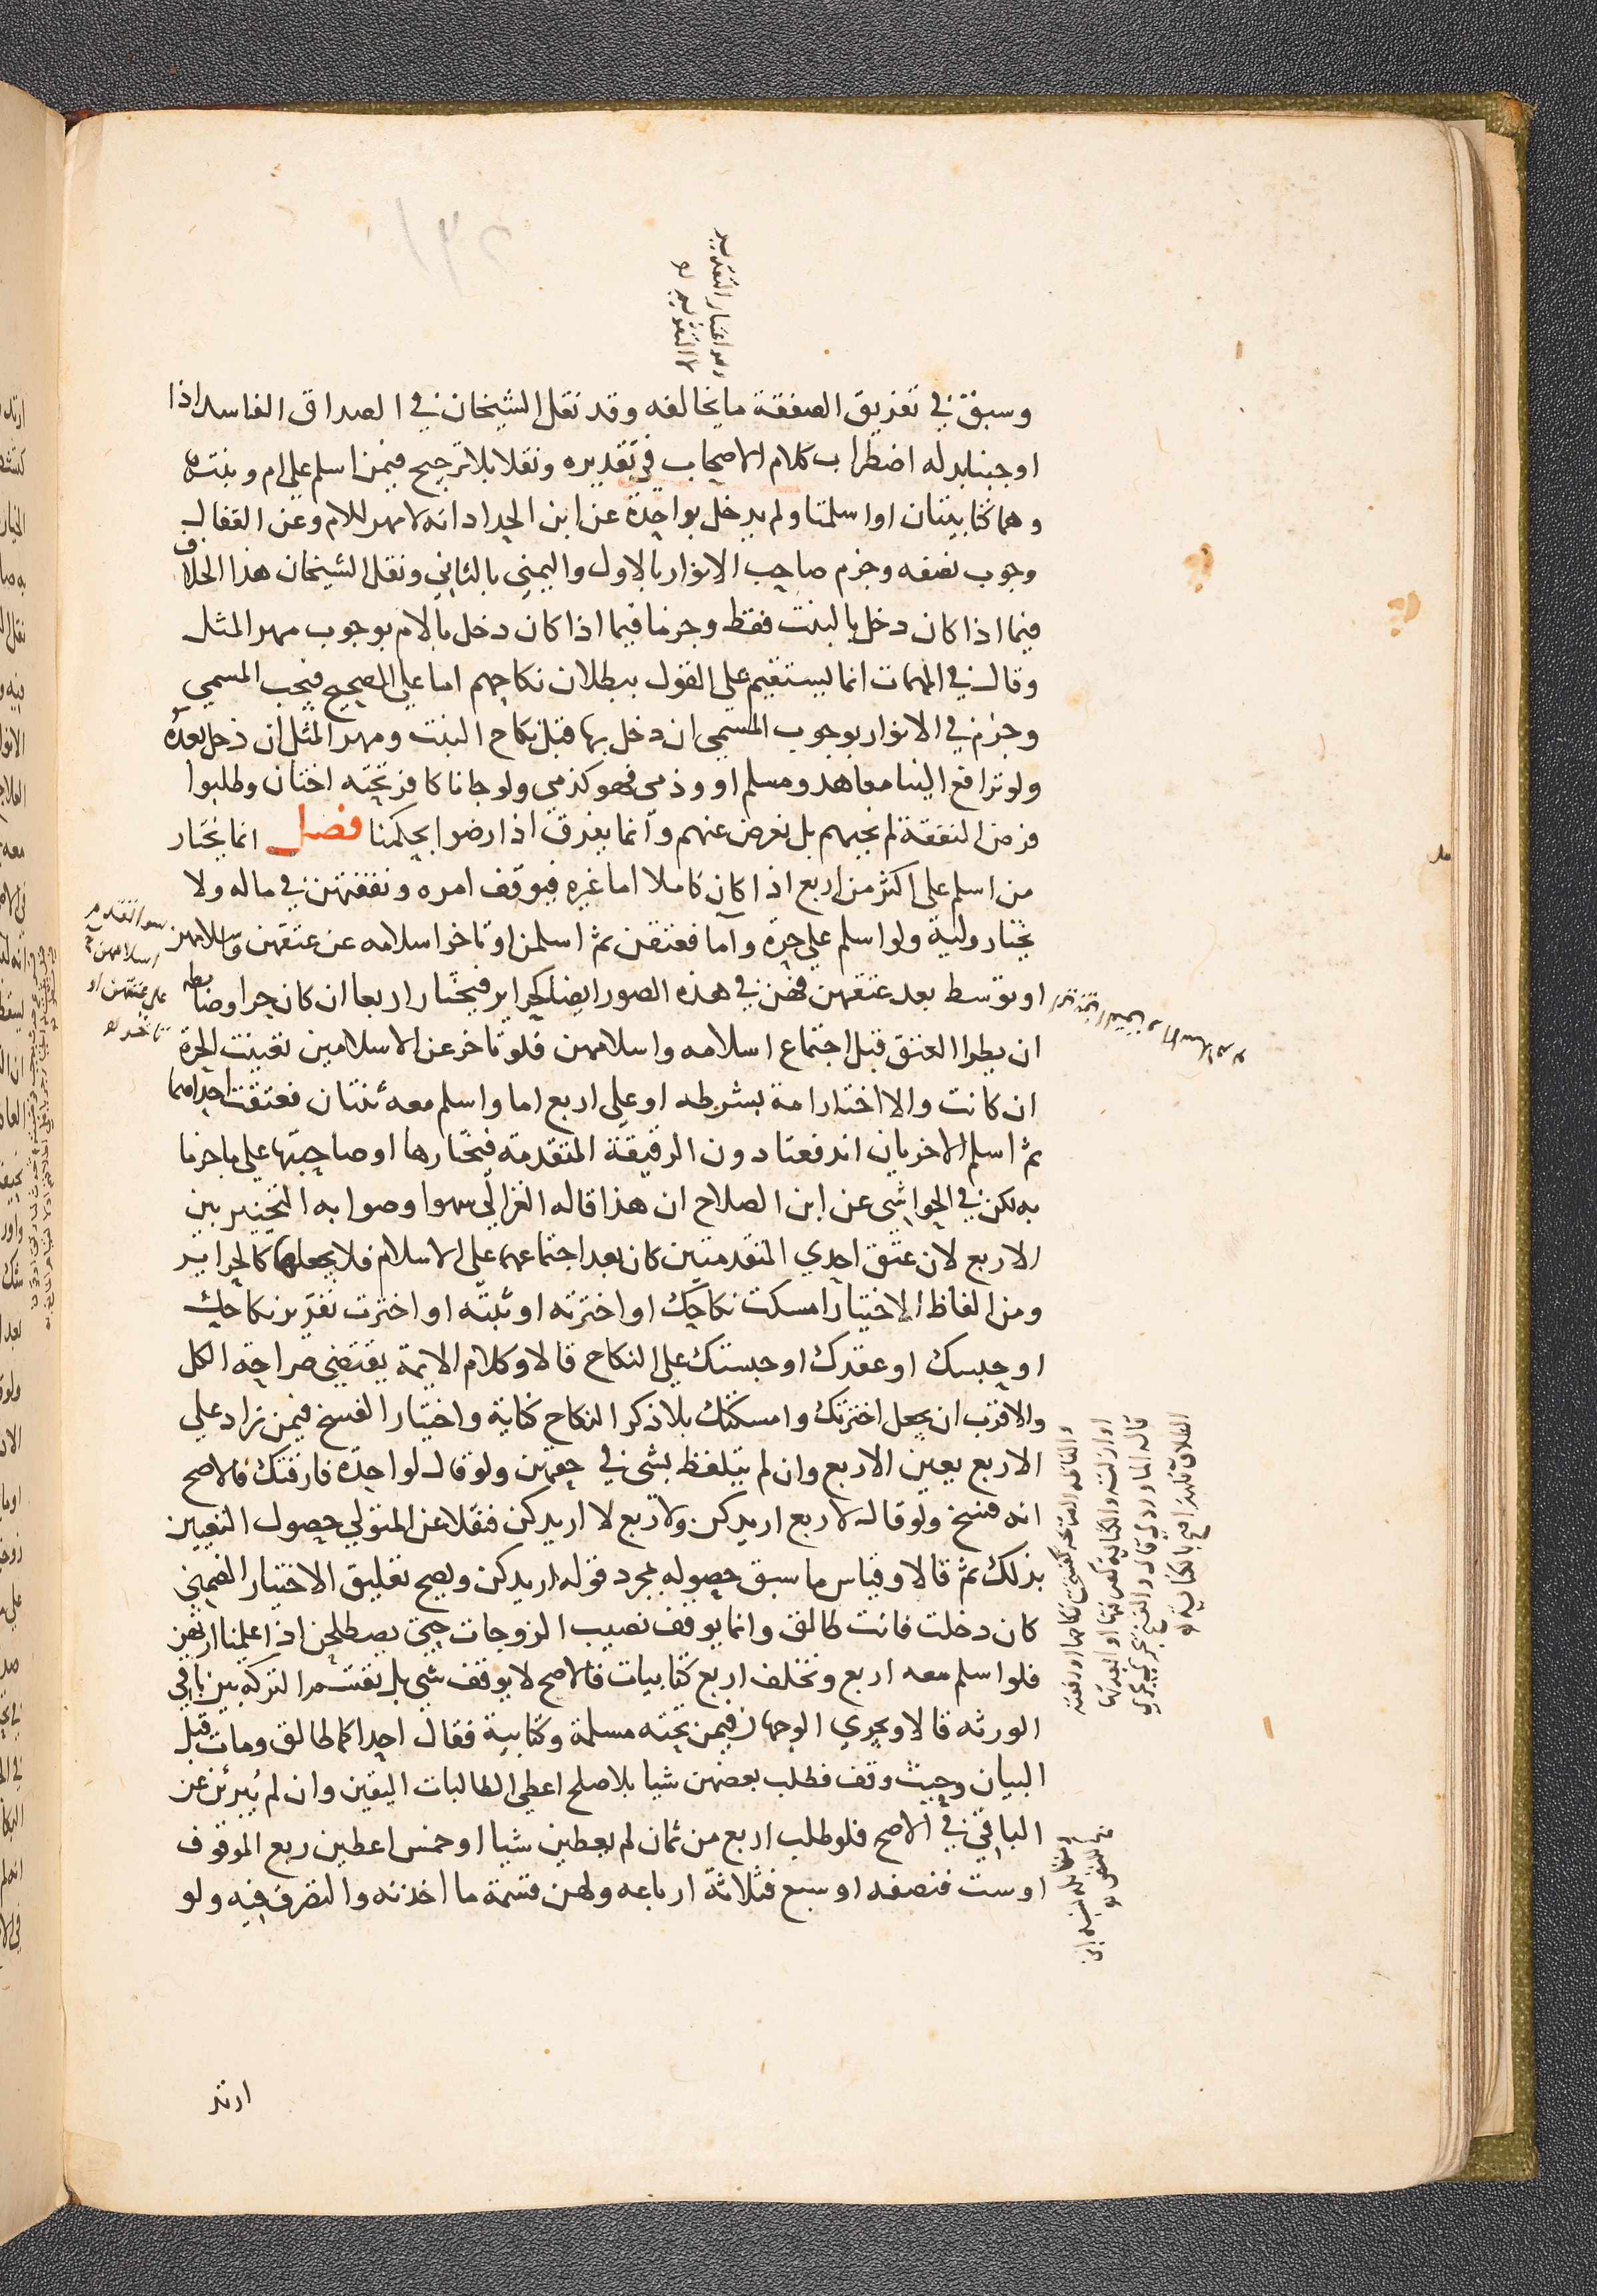 وسبق في تفريق الصفقة ما يخالفه وقد نقل الشيخان في الصداق الفاسد اذا
اوجبنا بدله اضطراب كلام الاصحاب في تقديره ونقلا بلا ترجيح فيمن اسلم علي ام وبنت
وهما كتابيتان او اسلمتا ولم يدخل بواحدة عن ابن الحداد انه لا مهر للام وعن القفال
وجوب نصفه وجزم صاحب الانوار بالاول واليمني بالثاني ونقل الشيخان هذا الخلاف
فيما اذا كان دخل بالبنت فقط وجزما فيما اذا كان دخل بالام بوجوب مهر المثل
وقال في المهمات انما يستقيم علي القول ببطلان نكاحهم اما علي الصحيح فيجب المسمي
وجزم في الانوار بوجوب المسمي ان دخل بها قبل نكاح البنت ومهر المثل ان دخل بعده
ولو ترافع الينا معاهد ومسلم او وذمي فهو كذمي ولو جانا كافر تحته اختان وطلبوا
فرض النفقة لم نجبهم بل نعرض عنهم وانما يفرق اذا رضوا بحكمنا فصل انما يختار
من اسلم علي اكثر من اربع اذا كان كاملا اما غيره فيوقف امره ونفقتهن في ماله ولا
يختار وليه ولو اسلم علي حرة واما فعتقن ثم اسلمن او تاخر اسلامه عن عتقهن واسلامهن
او توسط بعد عتقهن فهن في هذه الصور ايضا كحراير فيختار اربعا ان كان حرا وضابطه
ان يطرا العتق قبل اجتماع اسلامه واسلامهن فلو تاخر عن الاسلامين تعينت الحرة
ان كانت والا اختار امة بشرطه او علي اربع اما واسلم معه ثنتان فعتقت احداهما
ثم اسلم الاخريان اندفعتا دون الرقيقة المتقدمة فيختارها او صاحبتها علي ما جزما
به لكن في الحواشي عن ابن الصلاح ان هذا قاله الغزالي سهوا وصوابه التخيير بين
الاربع لان عتق احدي المتقدمتين كان بعد اجتماعهما علي الاسلام فلا يجعلها كالحراير
ومن الفاظ الاختيار امسكت نكاحك او اخترته او ثبته او اخترت تقرير نكاحك
او حبسك او عقدك او حبستك علي النكاح قالا وكلام الايمة يقتضي صراحة الكل
والاقرب ان يجعل اخترتك وامسكتك بلا ذكر النكاح كناية واختيار الفسخ فيمن زاد علي
الاربع يعين الاربع وان لم يتلفظ بشي في حقهن ولو قال لواحدة فارقتك فالاصح
انه فسخ ولو قال لاربع اريدكن ولاربع لا اريدكن فنقلا عن المتولي حصول التعيين
بذلك ثم قالا وقياس ما سبق حصوله بمجرد قوله اريدكن ويصح تعليق الاختيار الضمني
كان دخلت فانت طالق وانما يوقف نصيب الزوجات حتي يصطلحن اذا علمنا ارثهن
فلو اسلم معه اربع وتخلف اربع كتابيات فالاصح لا يوقف شي بل تقسم التركه بين باقي
الورثه قالا ويجري الوجهان فيمن تحته مسلمة وكتابية فقال احداكما طالق ومات قبل
البيان وحيث وقف فطلب بعضهن شيا بلا صلح اعطي الطالبات اليقين وان لم يبرئن عن
الباقي في الاصح فلو طلب اربع من ثمان لم يعطين شيا او خمس اعطين ربع الموقوف
او ست فنصفه او سبع فثلاثة ارباعه ولهن قسمة ما اخذنه والتصرف فيه ولو
ارتد